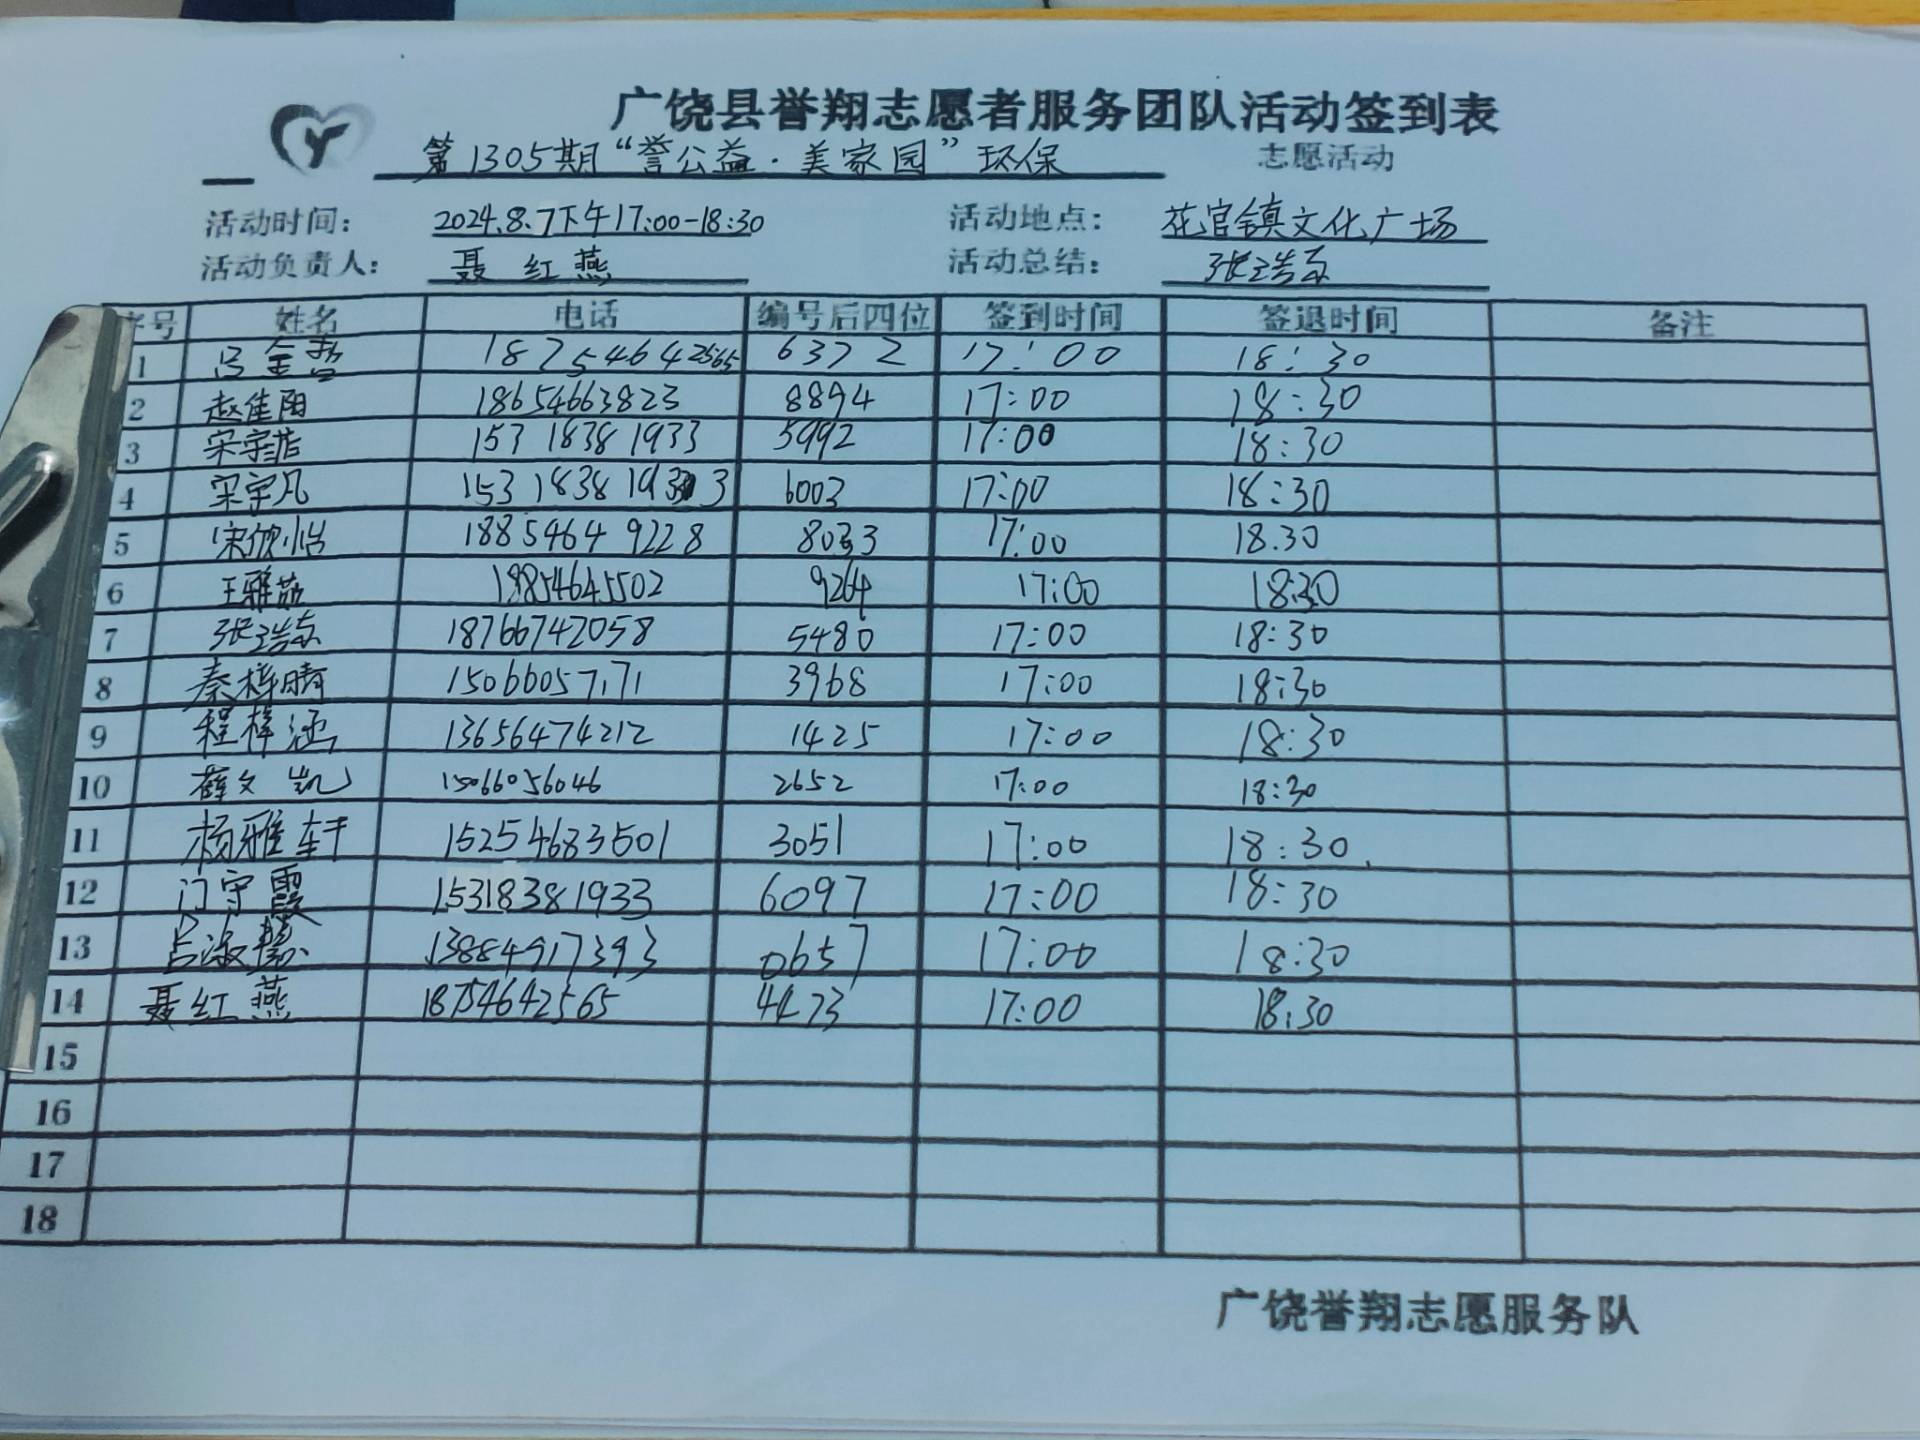 广饶县誉翔志愿者服务团队活动签到表
第1305期“誉公益·美家园”环保 志愿活动
活动时间: 2024.8.7下午17:00-18:30 活动地点: 花官镇文化广场
活动负责人: 聂红燕 活动总结: 张浩
序号 姓名 电话 编号后四位 签到时间 签退时间 备注
1 18754642565 6372 17:00 18:30
2 赵佳阳 18654663823 8894 17:00 18:30
3 宋宇浩 153 1838 1933 5992 17:00 18:30
4 宋宇凡 153 1838 1933 6003 17:00 18:30
5 宋欣怡 1885464 9228 8033 17:00 18.30
6 王雅茹 18854645502 9264 17:00 18:30
7 张浩 18766742058 5480 17:00 18:30
8 秦梓晴 15066057171 3968 17:00 18:30
9 程梓涵 13656474212 1425 17:00 18:30
10 薛文凯 15066056046 2652 17:00 18:30
11 杨雅轩 15254683501 3051 17:00 18:30
12 门守霞 15318381933 6097 17:00 18:30
13 吕淑慧 13884917393 0657 17:00 18:30
14 聂红燕 18754642565 4473 17:00 18:30
15
16
17
18
广饶誉翔志愿服务队